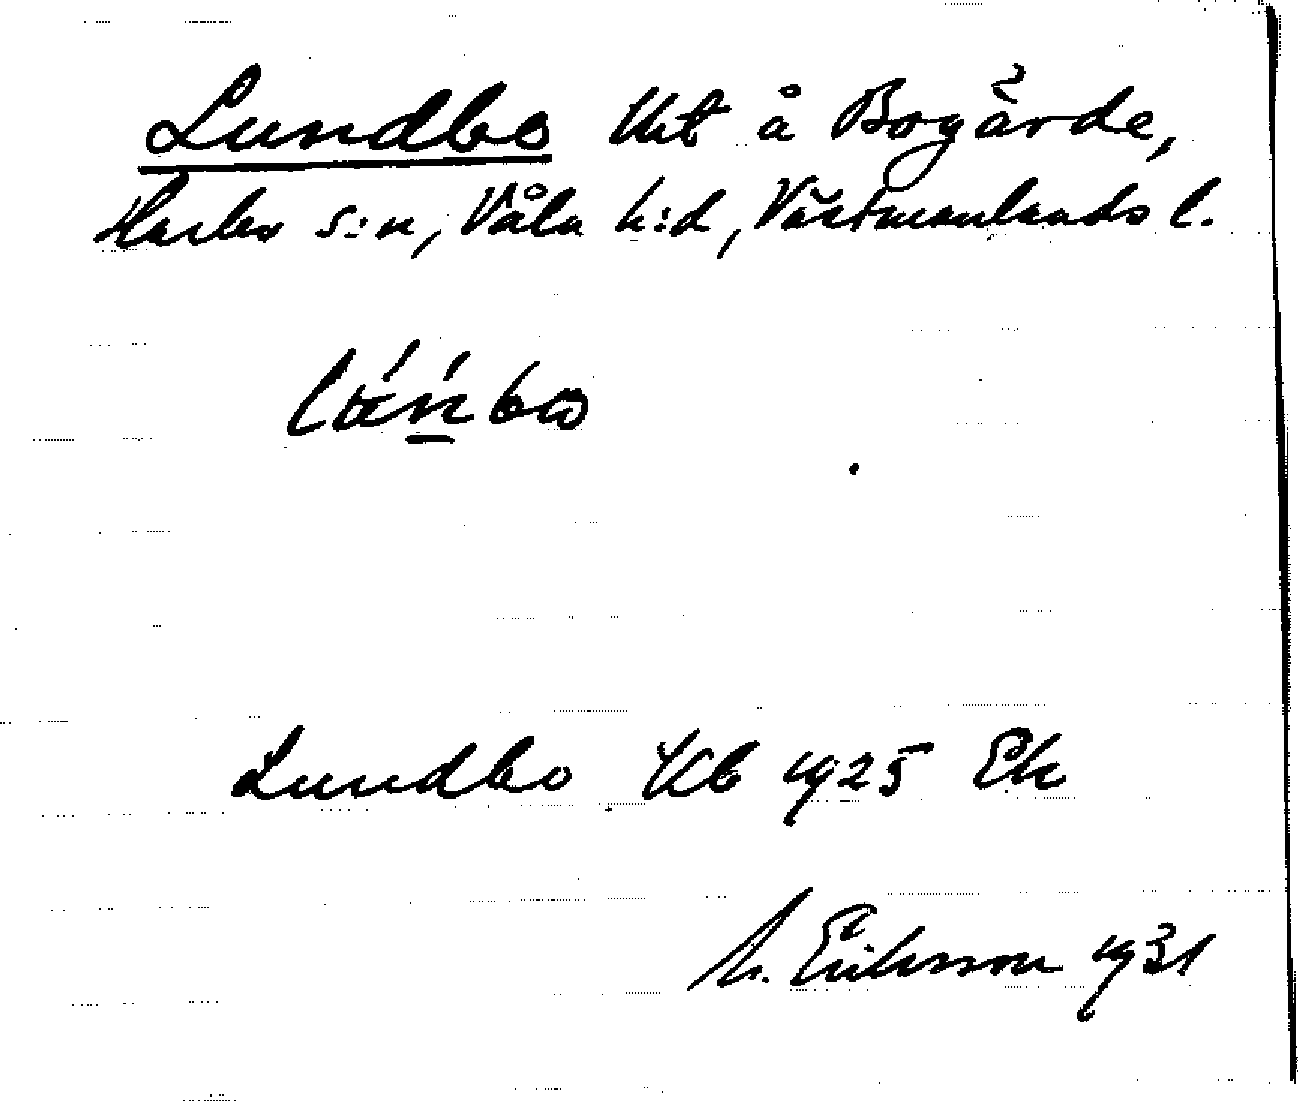 Lundbo Utt å Bogårde,
Harbo s:n, Våla h:d, Västmanlands l.
Lundbo Kb 1925 Ek
M. Eriksson 1931